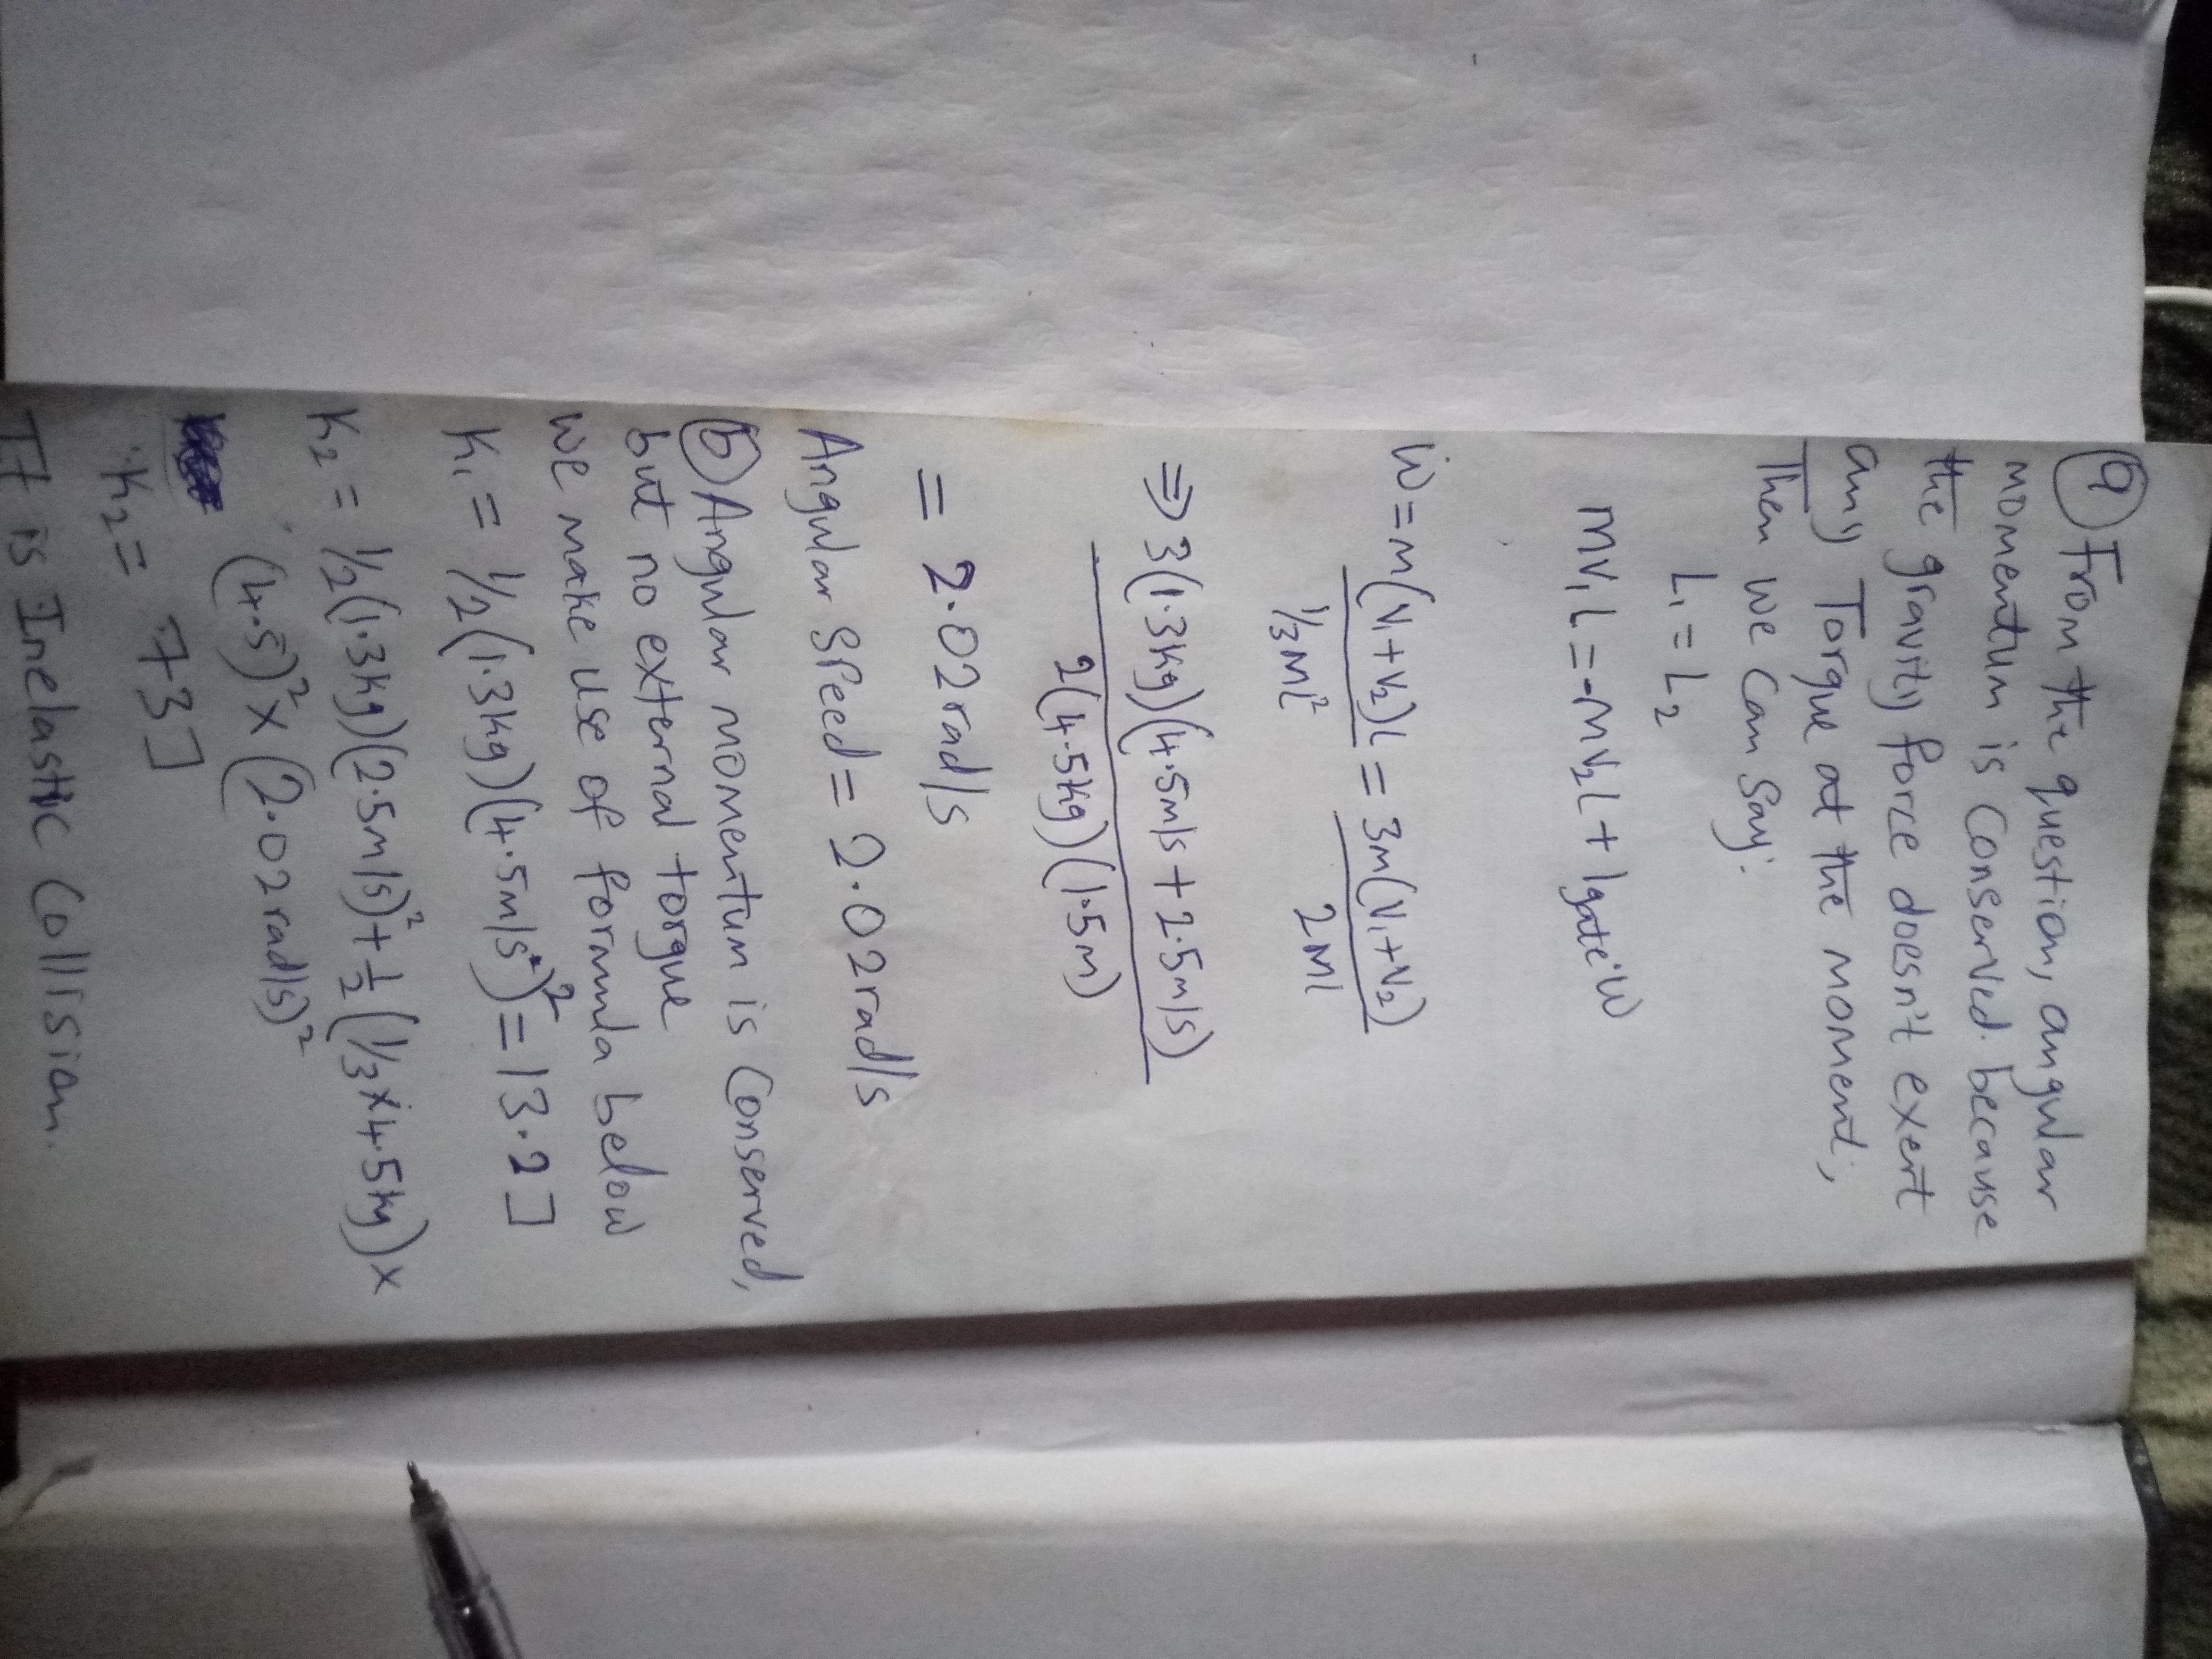 (a) From the question, angular
momentum is conserved. because
the gravity force doesn't exert
any Torque at the moment,
Then we can say:
L₁ = L₂
mv₁L = -mv₂L + Igate·W
W = m(v₁+v₂)L / ⅓ML² = 3m(v₁+v₂) / 2ML
⇒ 3(1.3kg)(4.5m/s + 2.5m/s) / 2(4.5kg)(1.5m)
= 2.02rad/s
Angular speed = 2.02rad/s
(b) Angular momentum is conserved,
but no external torque
we make use of formula below
K₁ = ½(1.3kg)(4.5m/s)² = 13.2J
K₂ = ½(1.3kg)(2.5m/s)² + ½(⅓×4.5kg)×
(4.5)² × (2.02rad/s)²
K₂ = 73J
It is Inelastic Collision.